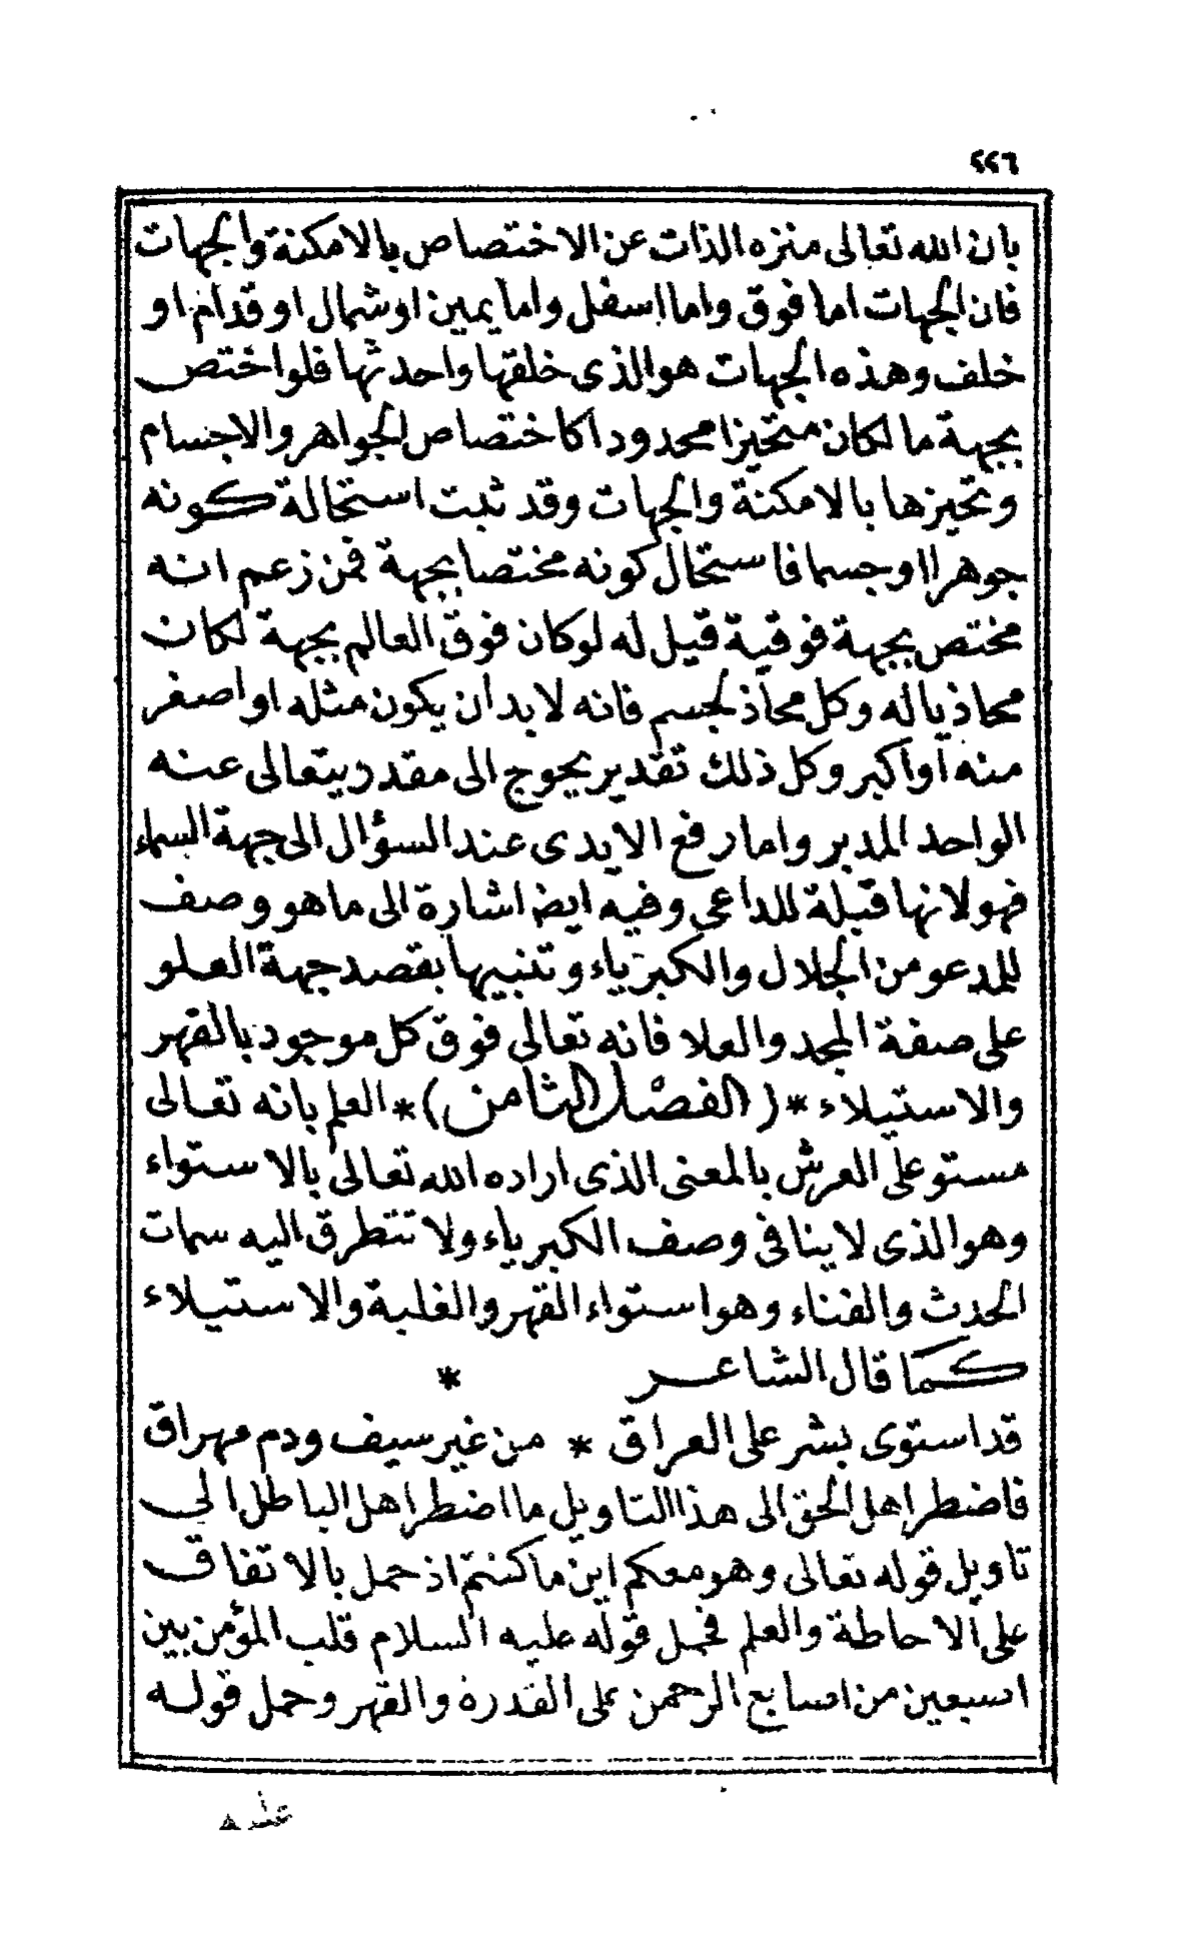 ٢٢٦
بان الله تعالى منزه الذات عن الاختصاص بالامكنة والجهات
فان الجهات اما فوق واما اسفل واما يمين او شمال او قدام او
خلف وهذه الجهات هو الذى خلقها واحدثها فلو اختص
بجهة ما لكان متحيزا محدودا كاختصاص الجواهر والاجسام
وتحيزها بالامكنة والجهات وقد ثبت استحالة كونه
جوهرا او جسما فاستحال كونه مختصا بجهة فمن زعم انه
مختص بجهة فوقية قيل له لو كان فوق العالم بجهة لكان
محاذيا له وكل محاذ لجسم فانه لابد ان يكون مثله او اصغر
منه او اكبر وكل ذلك تقدير يحوج الى مقدر يتعالى عنه
الواحد المدبر واما رفع الايدى عند السؤال الى جهة السماء
فهو لانها قبلة للداعى وفيه ايضا اشارة الى ما هو وصف
للمدعو من الجلال والكبرياء وتنبيها بقصد جهة العلو
على صفة المجد والعلا فانه تعالى فوق كل موجود بالقهر
والاستيلاء *(الفصل الثامن)* العلم بانه تعالى
مستو على العرش بالمعنى الذى اراده الله تعالى بالاستواء
وهو الذى لا ينافى وصف الكبرياء ولا تتطرق اليه سمات
الحدث والفناء وهو استواء القهر والغلبة والاستيلاء
كما قال الشاعر *
قد استوى بشر على العراق * من غير سيف ودم مهراق
فاضطر اهل الحق الى هذا التاويل ما اضطر اهل الباطل الى
تاويل قوله تعالى وهو معكم اين ما كنتم اذ حمل بالاتفاق
على الاحاطة والعلم فحمل قوله عليه السلام قلب المؤمن بين
اصبعين من اصابع الرحمن على القدرة والقهر وحمل قوله